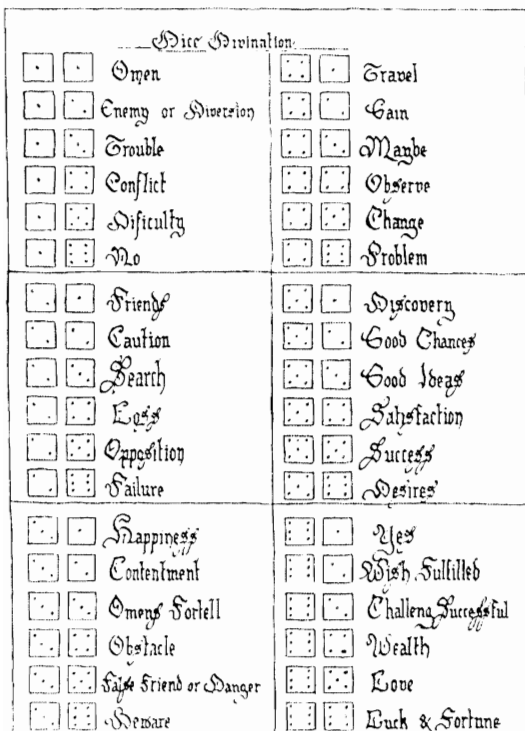 Dice Divination
Omen
Enemy or Diversion
Trouble
Conflict
Dificulty
No
Friends
Caution
Search
Loss
Opposition
Failure
Happiness
Contentment
Omens Fortell
Obstacle
False Friend or Danger
Beware
Travel
Gain
Maybe
Observe
Change
Problem
Discovery
Good Chances
Good Ideas
Satisfaction
Success
Desires
Yes
Wish Fulfilled
Challeng Successful
Wealth
Love
Luck & Fortune